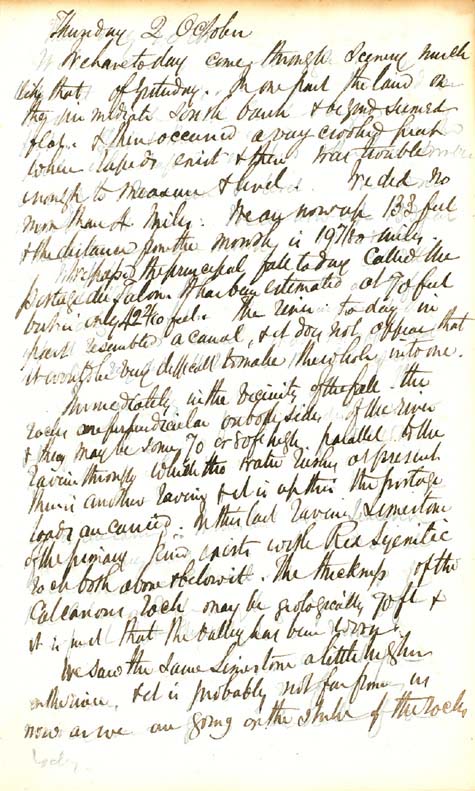 Thursday 2 October
We have to day come through scenery much
like that of yesterday. In one part the land on
the immediate South bank & beyond seemed
of clay. & then occurred a very crooked part
where rapids exist & there was trouble
enough to measure & level. We did no
more than 4 miles. We are now up 133 feet
& the distance from the mouth is 19 7/10 miles.
We passed the principal fall to day called the
portage du Talon. It has been estimated at 70 feet
but is only 42 4/10 feet. The river to-day in
parts resembled a canal, & it does not appear that
it would be very difficult to make the whole into one.
Immediately in the vicinity of the fall the
rocks are perpendicular on both sides of the river
& they may be some 70 or 80 ft high. parallel to the
ravine through which the water rushes at present
there is another ravine & it is up this the portage
loads are carried. In this last ravine Limestone
of the primary kind exists with Red Syenitic
rock both above & below it. The thickness of the
Calcareous rock may be geologically 70 ft &
it is in it that the valley has been worn.
We saw the same Limestone a little higher
on the river, & it is probably not far from us
now as we are going on the strike of the rocks